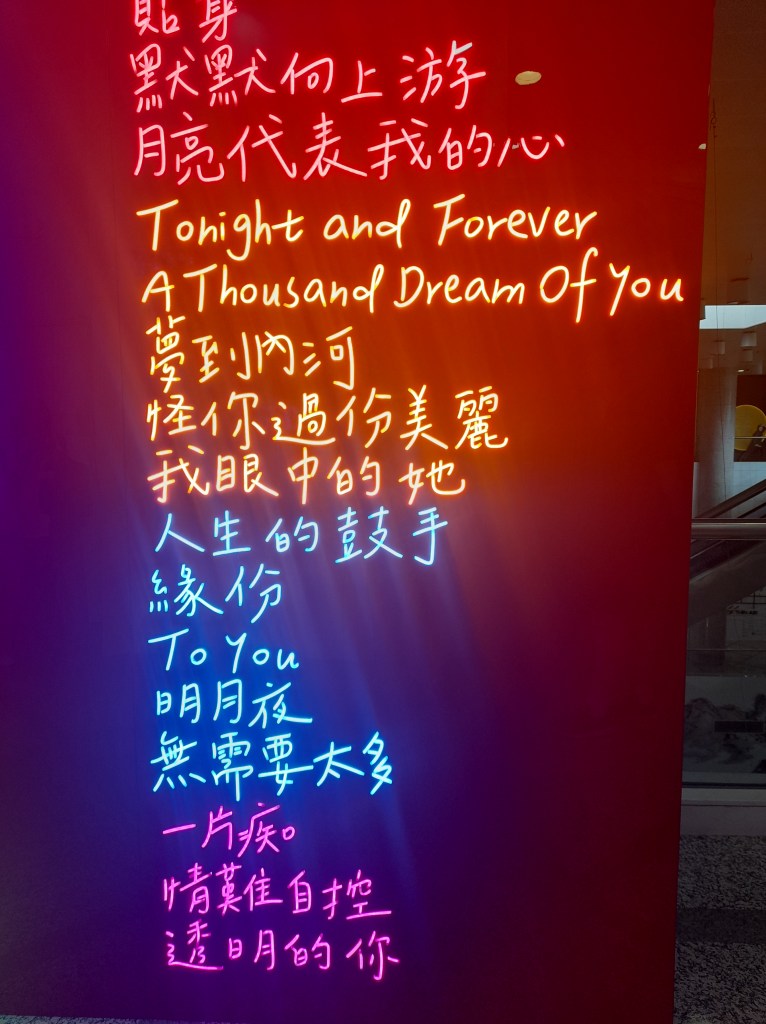 貼身
默默向上游
月亮代表我的心
Tonight and Forever
A Thousand Dream Of You
夢到內河
怪你過份美麗
我眼中的她
人生的鼓手
緣份
To You
明月夜
無需要太多
一片痴
情難自控
透明的你